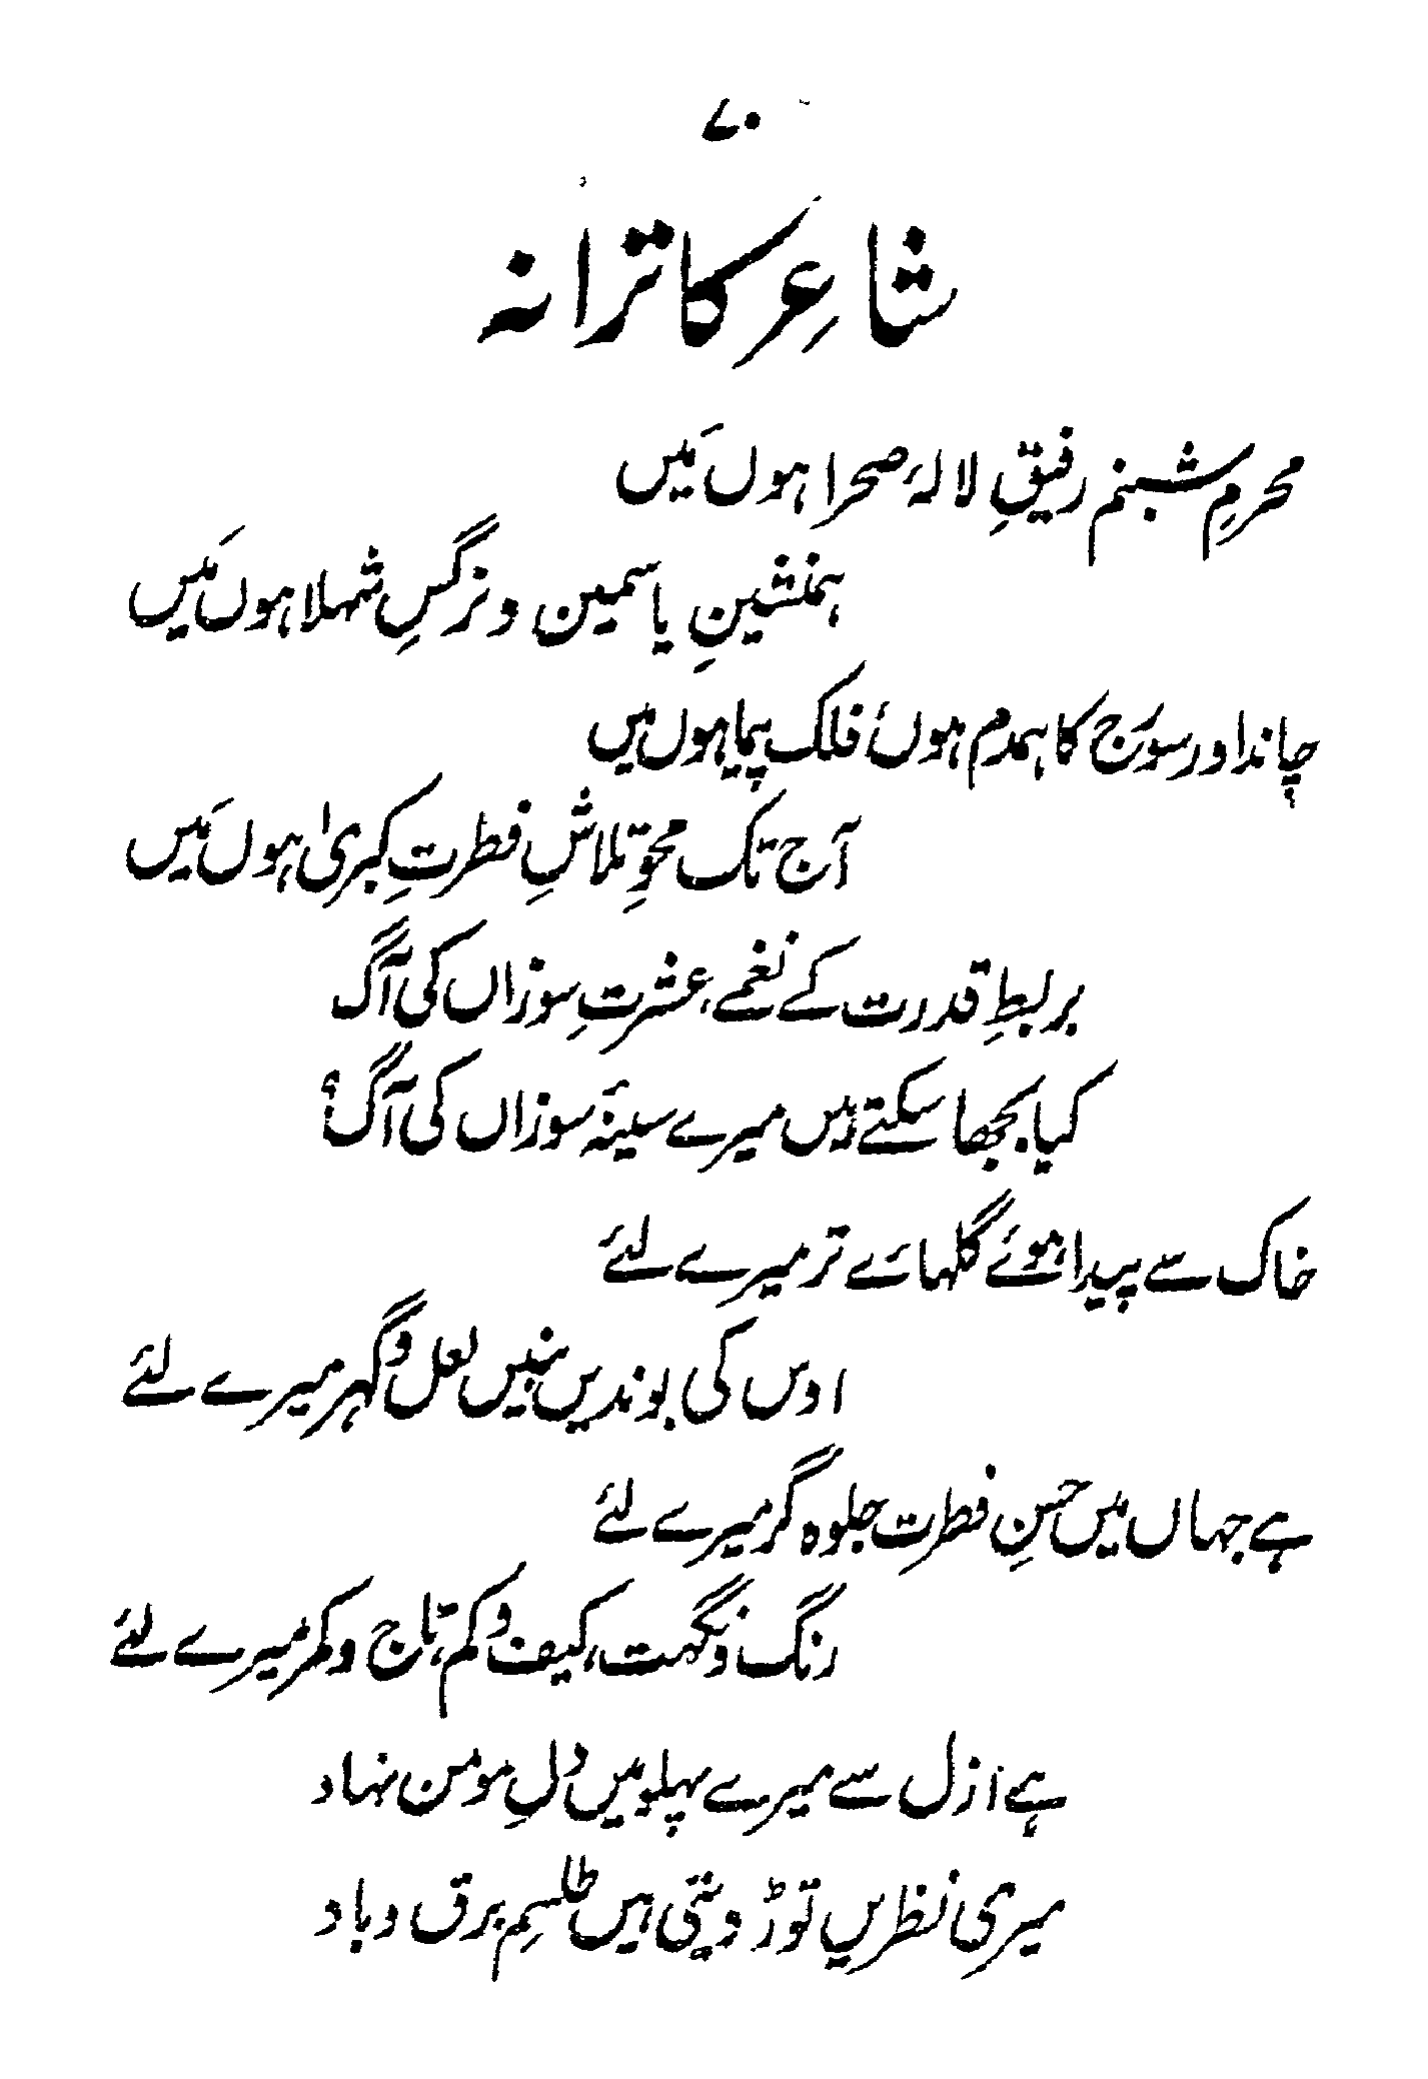 ۷۰
شاعِر کا ترانہ
محرمِ شبنم رفیقِ لالۂ صحرا ہوں مَیں
ہمنشینِ یاسمین و نرگسِ شہلا ہوں مَیں
چاند اور سورَج کا ہمدم ہوں، فلک پیما ہوں میں
آج تک محوِ تلاشِ فطرتِ کبریٰ ہوں مَیں
بربطِ قدرت کے نغمے، عشرتِ سوزاں کی آگ
کیا بجھا سکتے ہیں میرے سینۂ سوزاں کی آگ؟
خاک سے پیدا ہوئے گلہائے تر میرے لئے
اوس کی بوندیں بنیں لعل و گہر میرے لئے
ہے جہاں میں حسنِ فطرت جلوہ گر میرے لئے
رنگ و نگہت، کیف و کم، تاج و کمر میرے لئے
ہے ازل سے میرے پہلو میں دلِ مومن نہاد
میری نظریں توڑ دیتی ہیں طلسمِ برق و باد